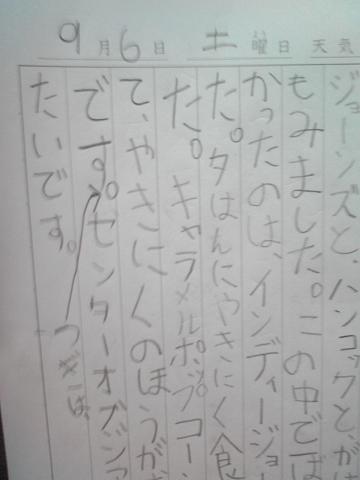 9月6日 土曜日 天気
ジョーンズと、ハンコックと、が
もみました。この中では
かったのは、インディージョー
た。夕はんにやきにく食
た。キャラメルポップコーン
て、やきにくのほうが
です。センターオブジア
たいです。
つぎは、